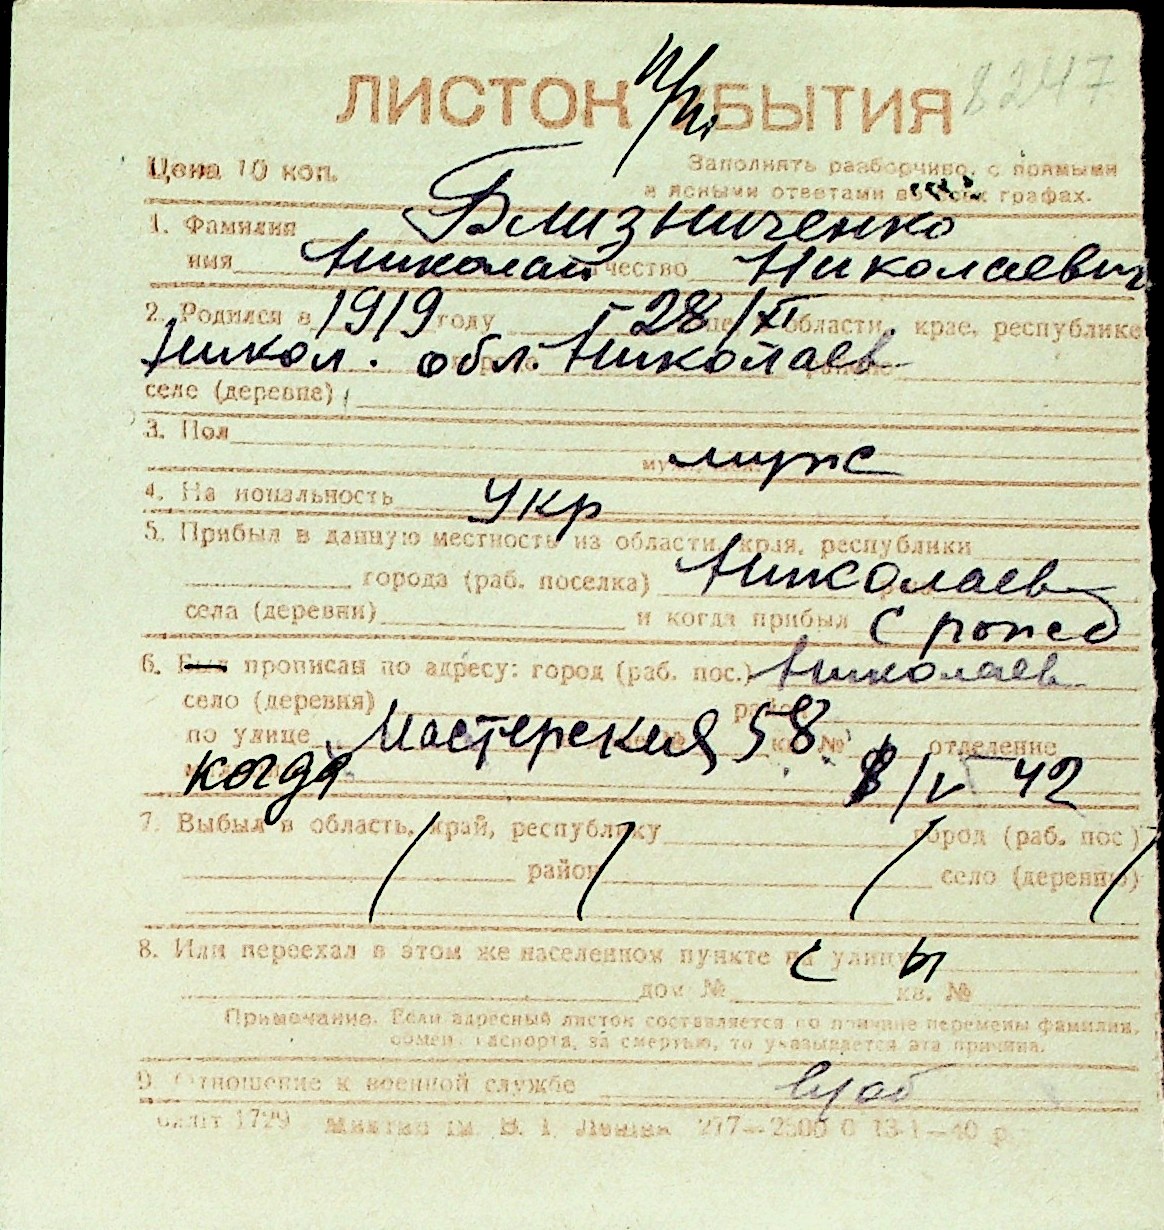 8247
ЛИСТОК УБЫТИЯ
Цена 10 коп.
Заполнять разборчиво, с прямыми
и ясными ответами во всех графах.
1. Фамилия Близниченко
имя Николай отчество Николаевич
2. Родился в 1919 году 28/XI области, крае, республике
Никол. обл. Николаев
селе (деревне)
3. Пол
муж
4. Национальность Укр
5. Прибыл в данную местность из области, края, республики
города (раб. поселка) Николаев
села (деревни) и когда прибыл с рожд
6. Был прописан по адресу: город (раб. пос.) Николаев
село (деревня) район
по улице Мастерская 58 кв. № отделение
когда /V 42
7. Выбыл в область, край, республику город (раб. пос.)
район село (деревню)
8. Или переехал в этом же населенном пункте на улицу
дом № кв. №
Примечание. Если адресный листок составляется по причине перемены фамилии,
обмена паспорта, за смертью, то указывается эта причина.
9. Отношение к военной службе
1729 В. І. Леніна 277—2500 0 13-1—40 р.